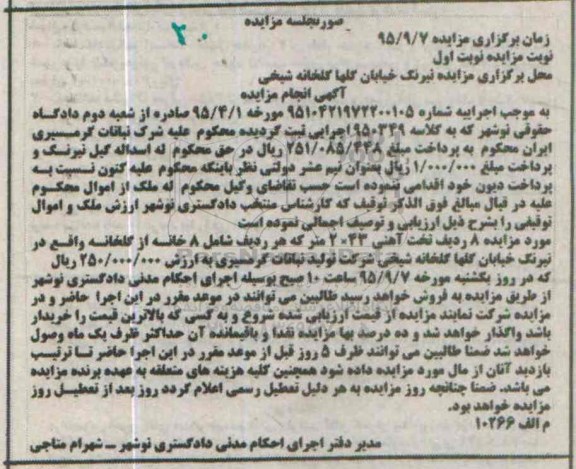 ۲۰
صورتجلسه مزایده
زمان برگزاری مزایده ۹۵/۹/۷
نوبت مزایده نوبت اول
محل برگزاری مزایده نیرنگ خیابان گلها گلخانه شیخی
آگهی انجام مزایده
به موجب اجراییه شماره ۹۵۱۰۴۲۱۹۷۲۲۰۰۱۰۵ مورخه ۹۵/۴/۱ صادره از شعبه دوم دادگاه
حقوقی نوشهر که به کلاسه ۹۵۰۳۴۹ اجرایی ثبت گردیده محکوم علیه شرک نباتات گرمسیری
ایران محکوم به پرداخت مبلغ ۲۵۱/۰۸۵/۴۴۸ ریال در حق محکوم له اسداله گیل نیرنگ و
پرداخت مبلغ ۱/۰۰۰/۰۰۰ ریال بعنوان نیم عشر دولتی نظر باینکه محکوم علیه کنون نسبت به
پرداخت دیون خود اقدامی ننموده است حسب تقاضای وکیل محکوم له ملک از اموال محکوم
علیه در قبال مبالغ فوق الذکر توقیف که کارشناس منتخب دادگستری نوشهر ارزش ملک و اموال
توقیفی را بشرح ذیل ارزیابی و توصیف اجمالی نموده است
مورد مزایده ۸ ردیف تخت آهنی ۴۳×۲ متر که هر ردیف شامل ۸ خانه از گلخانه واقع در
نیرنگ خیابان گلها گلخانه شیخی شرکت تولید نباتات گرمسیری به ارزش ۲۵۰/۰۰۰/۰۰۰ ریال
که در روز یکشنبه مورخه ۹۵/۹/۷ ساعت ۱۰ صبح بوسیله اجرای احکام مدنی دادگستری نوشهر
از طریق مزایده به فروش خواهد رسید طالبین می توانند در موعد مقرر در این اجرا حاضر و در
مزایده شرکت نمایند مزایده از قیمت ارزیابی شده شروع و به کسی که بالاترین قیمت را خریدار
باشد واگذار خواهد شد و ده درصد بها مزایده نقدا و باقیمانده آن حداکثر ظرف یک ماه وصول
خواهد شد ضمنا طالبین می توانند ظرف ۵ روز قبل از موعد مقرر در این اجرا حاضر تا ترتیب
بازدید آنان از مال مورد مزایده داده شود همچنین کلیه هزینه های متعلقه به عهده برنده مزایده
می باشد. ضمنا چنانچه روز مزایده به هر دلیل تعطیل رسمی اعلام گردد روز بعد از تعطیل روز
مزایده خواهد بود.
م الف ۱۰۲۶۶
مدیر دفتر اجرای احکام مدنی دادگستری نوشهر – شهرام متاجی